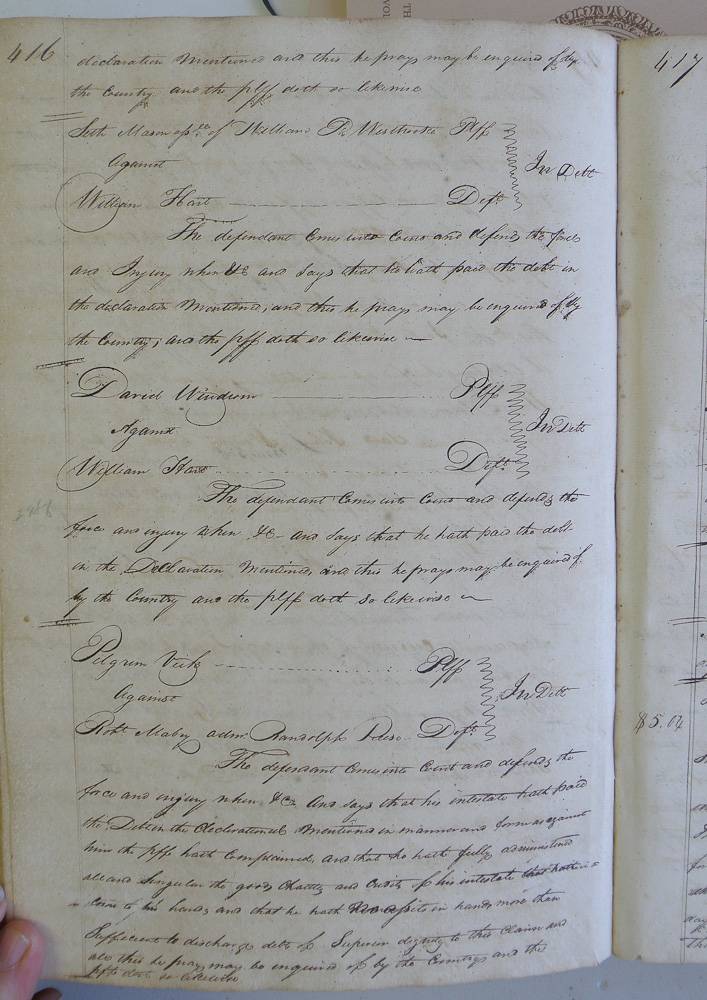 416
declaration Mentioned and this he prays may be enquired of by
the Country and the plff doth so likewise
Seth Mason of William Westbrooke Plff
Against
In Debt
William Hart Deft
The defendant Comes into Court and defends the force
and Injury when &c and Says that he hath paid the debt in
the declaration Mentioned, and this he prays may be enquired of by
the Country, and the plff doth so likewise
David Windum Plff
Against
In Debt
William Hart Deft
The defendant Comes into Court and defends the
force and injury when &c and Says that he hath paid the debt
in the Declaration Mentioned and this he prays may be enquired of
by the Country and the plff doth so likewise
Pilgrim Plff
Against
In Debt
Robt Mabry adm. Randolph Deft
The defendant Comes into Court and defends the
force and injury when &c And says that his intestate hath paid
the Debt in the declaration Mentioned in manner and form as against
him the plff hath Complained, and that he hath fully administered
all and Singular the goods Chattles and Credits of his intestate that hath
come to his hands and that he hath in hands more than
Sufficient to discharge debts of Superior dignity to this Claim and
this he prays may be enquired of by the Country and the
plff doth so likewise
417
$5.04